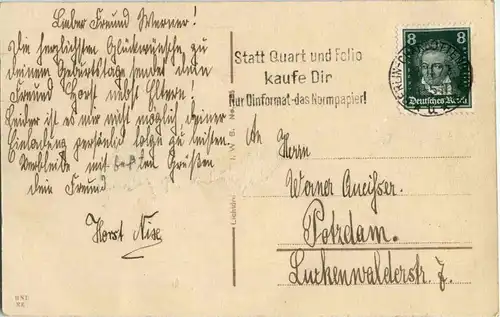 Lieber Freund Werner!
Die herzlichsten Glückwünsche zu
deinem Geburtstage sendet dein
Freund Horst nebst Eltern!
Leider ist es mir nicht möglich deiner
Einladung persönlich folge zu leisten.
Verbleibe mit besten Grüßen
dein Freund
Horst
Statt Quart und Folio
kaufe Dir
Nur Dinformat-das Normpapier!
8 8
Deutsches Reich
An
Herrn
Werner
Potzdam.
Luckenwalderstr. 7.